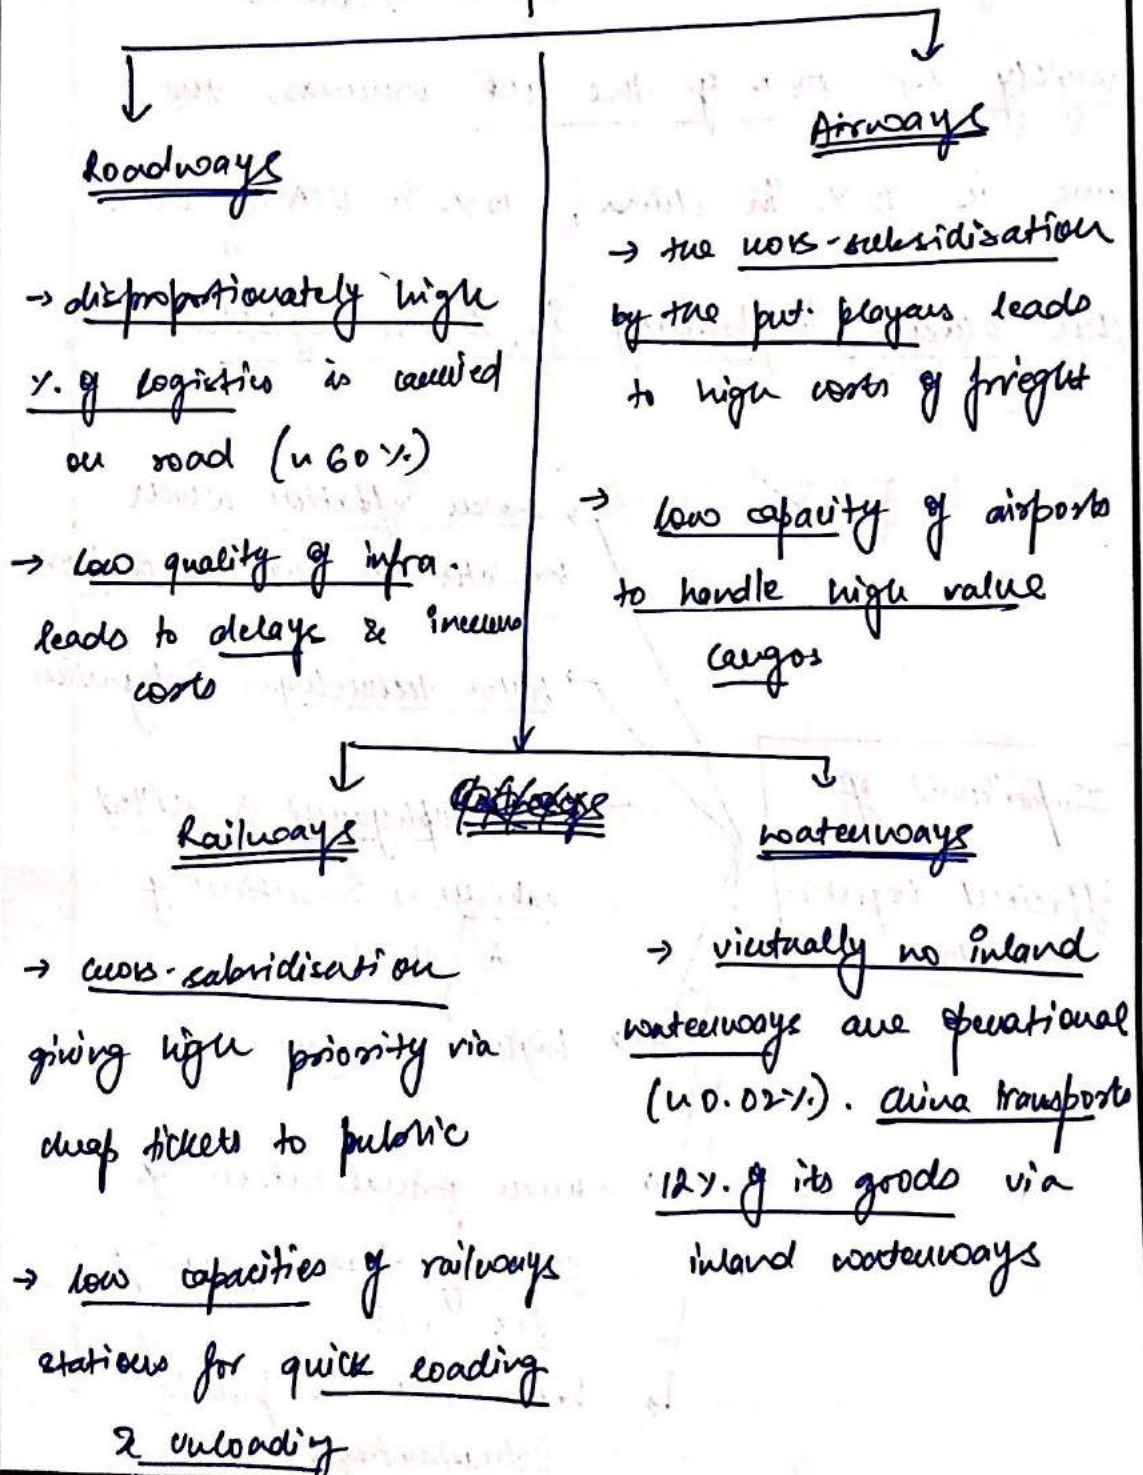 Roadways
→ disproportionately high
%. of logistics is carried
on road (~60%)
→ low quality of infra.
leads to delays &
costs
Airways
→ the non-subsidization
by the pvt. players leads
to high costs of frieght
→ low capacity of airports
to handle high value
cargos
Railways
→ cross-subsidisation
giving high priority via
cheap tickets to public
→ low capacities of railways
stations for quick loading
& unloading
Waterways
→ virtually no inland
waterways are operational
(~0.02%). China transports
12%. of its goods via
inland waterways